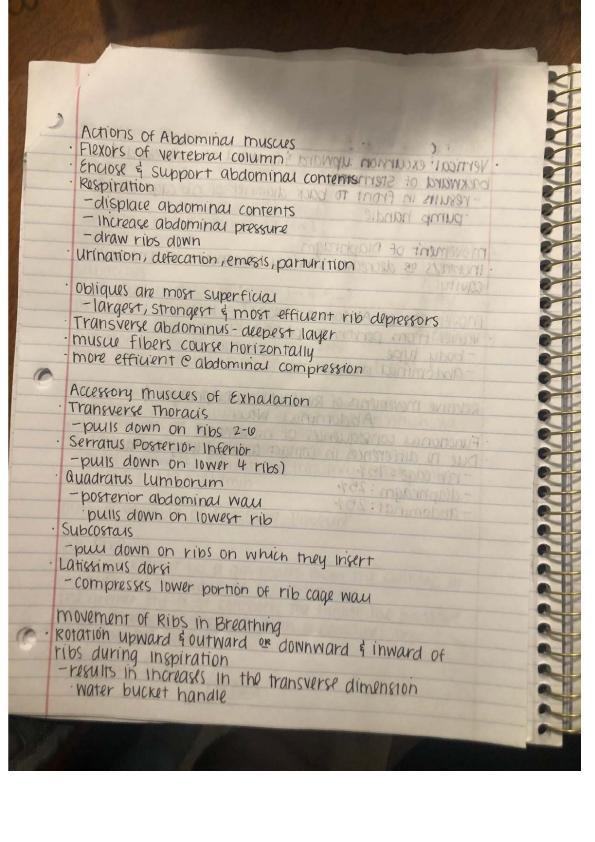 Actions of Abdominal muscles
· Flexors of vertebral column
· Enclose & support abdominal contents
· Respiration
-displace abdominal contents
- Increase abdominal pressure
-draw ribs down
· urination, defecation, emesis, parturition
· obliques are most superficial
-largest, strongest & most efficient rib depressors
Transverse abdominus - deepest layer
· muscle fibers course horizontally
· more efficient @ abdominal compression
Accessory muscles of Exhalation
· Transverse Thoracis
-pulls down on ribs 2-6
· Serratus Posterior Inferior
-pulls down on lower 4 ribs)
· Quadratus Lumborum
-posterior abdominal wall
· pulls down on lowest rib
· Subcostals
-pull down on ribs on which they insert
· Latissimus dorsi
-compresses lower portion of rib cage wall
movement of Ribs in Breathing
· Rotation upward & outward or downward & inward of
ribs during inspiration
-results in increases in the transverse dimension
· water bucket handle